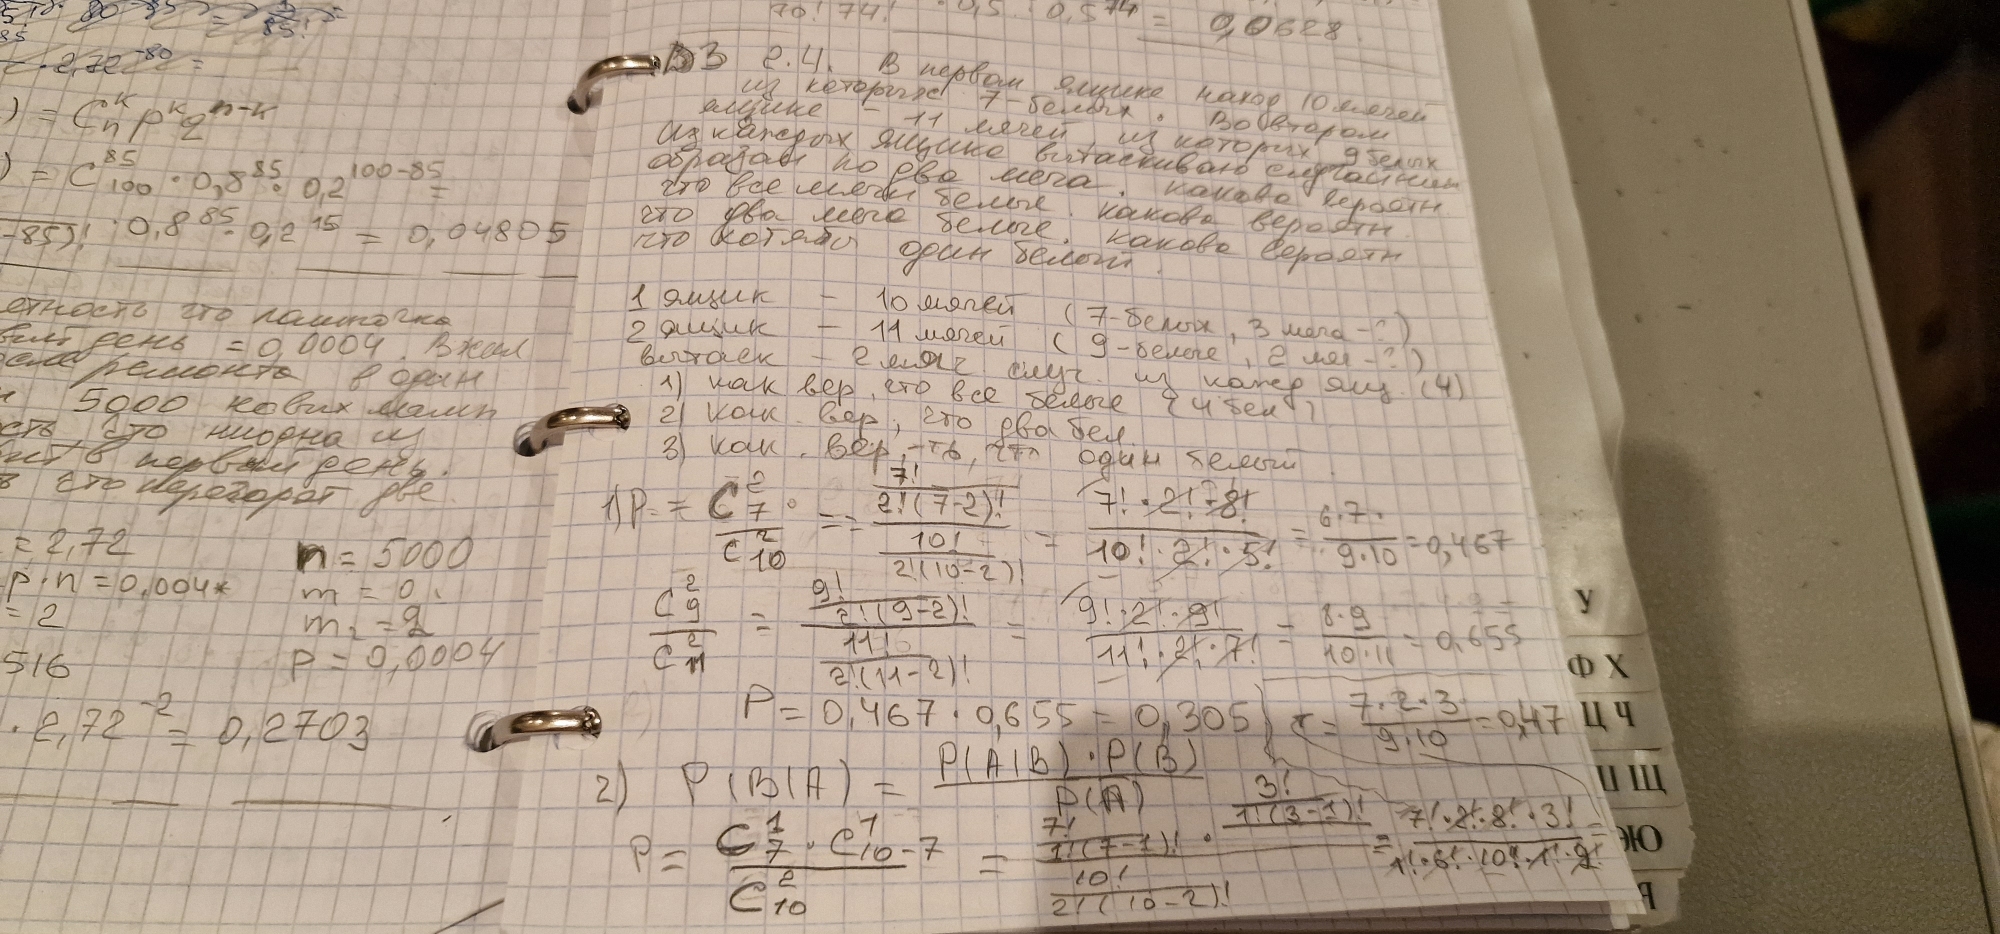 = 
85!
2,72^-80 =
) = C_n^k p^k q^n-k
) = C_100^85 · 0,8^85 · 0,2^100-85 =
-85)! · 0,8^85 · 0,2^15 = 0,04805
етность что лампочка
день = 0,0004. В жел
ремонта в один
5000 новых ламп
ость, что ниодна из
в первый день.
что перегорят две.
= 2,72 n = 5000
p·n = 0,004* m = 0.
= 2 m_2 = 2
p = 0,0004
516
· 2,72^-2 = 0,2703
70! 74! · 0,5 · 0,5^74 = 0,0628
ДЗ 2.4. В первом ящике наход 10 мячей
из которых 7-белых. Во втором
ящике - 11 мячей из которых 9 белых
Из каждых ящике вытаскиваю случайным
образам по два мяча. какова вероятн
что все мячи белые. какова вероятн.
что два мяча белые. какова вероятн
что хотябы один белый.
1 ящик - 10 мячей (7-белых, 3 мяча-?)
2 ящик - 11 мячей (9-белые, 2 мяч-?)
вытаск - 2 мяч случ. из кажд ящ. (4)
1) как вер, что все белые {4 бел}
2) как. вер, что два бел.
3) как. вер,-ть, что один белый.
1) P = C_7^2 / C_10^2 = 7! / 2!(7-2)! / 10! / 2!(10-2)! = 7!·2!·8! / 10!·2!·5! = 6·7· / 9·10 = 0,467
C_9^2 / C_11^2 = 9! / 2!(9-2)! / 11! / 2!(11-2)! = 9!·2!·9! / 11!·2!·7! = 8·9 / 10·11 = 0,655
P = 0,467 · 0,655 = 0,305 = 7·2·3 / 9·10 = 0,47
2) P(B|A) = P(A|B) · P(B) / P(A)
P = C_7^1 · C_10-7^1 / C_10^2 = 7! / 1!(7-1)! · 3! / 1!(3-1)! / 10! / 2!(10-2)! = 7!·2!·8!·3! / 1!·6!·10!·1!·2! =
У
Ф Х
Ц Ч
Щ
ЭЮ
Я